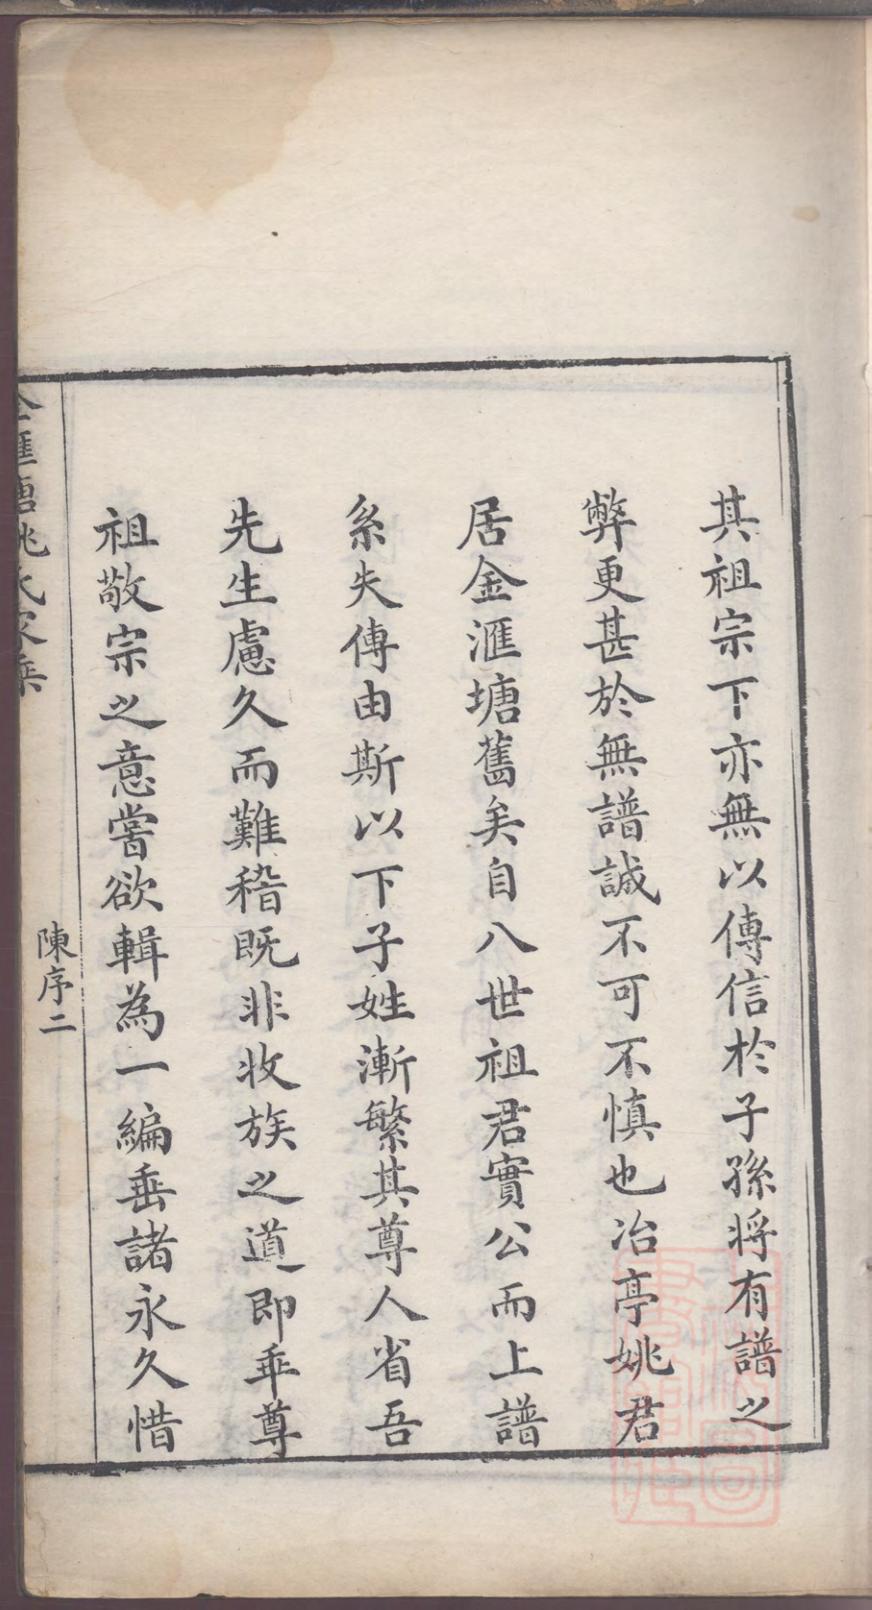 其祖宗下亦無以傳信於子孫將有譜之
弊更甚於無譜誠不可不慎也冶亭姚君
居金滙塘舊矣自八世祖君實公而上譜
系失傳由斯以下子姓漸繁其尊人省吾
先生慮久而難稽既非收族之道即乖尊
祖敬宗之意嘗欲輯為一編垂諸永久惜
金匯塘姚氏家乘
陳序二